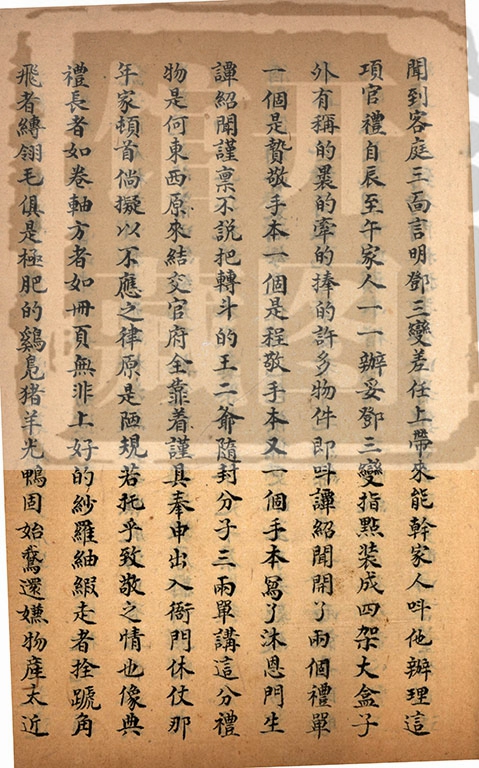 聞到客庭三面言明鄧三變差任上帶來能幹家人呌他辦理這
項官禮自辰至午家人一一辦妥鄧三變指點装成四架大盒子
外有稱的裹的牽的捧的許多物件即呌譚紹聞開了兩個禮單
一個是贄敬手本一個是程敬手本又一個手本寫了沐恩門生
譚紹聞謹禀不說把轉斗的王二爺隨封分子三兩單講這分禮
物是何東西原來結交官府全靠着謹具奉申出入衙門休仗那
年家頓首倘擬以不應之律原是陋規若托乎致敬之情也像典
禮長者如卷軸方者如冊頁無非上好的紗羅紬緞走者拴蹏角
飛者縛翎毛俱是極肥的鷄鳧猪羊光鴨固始鵞還嫌物產太近